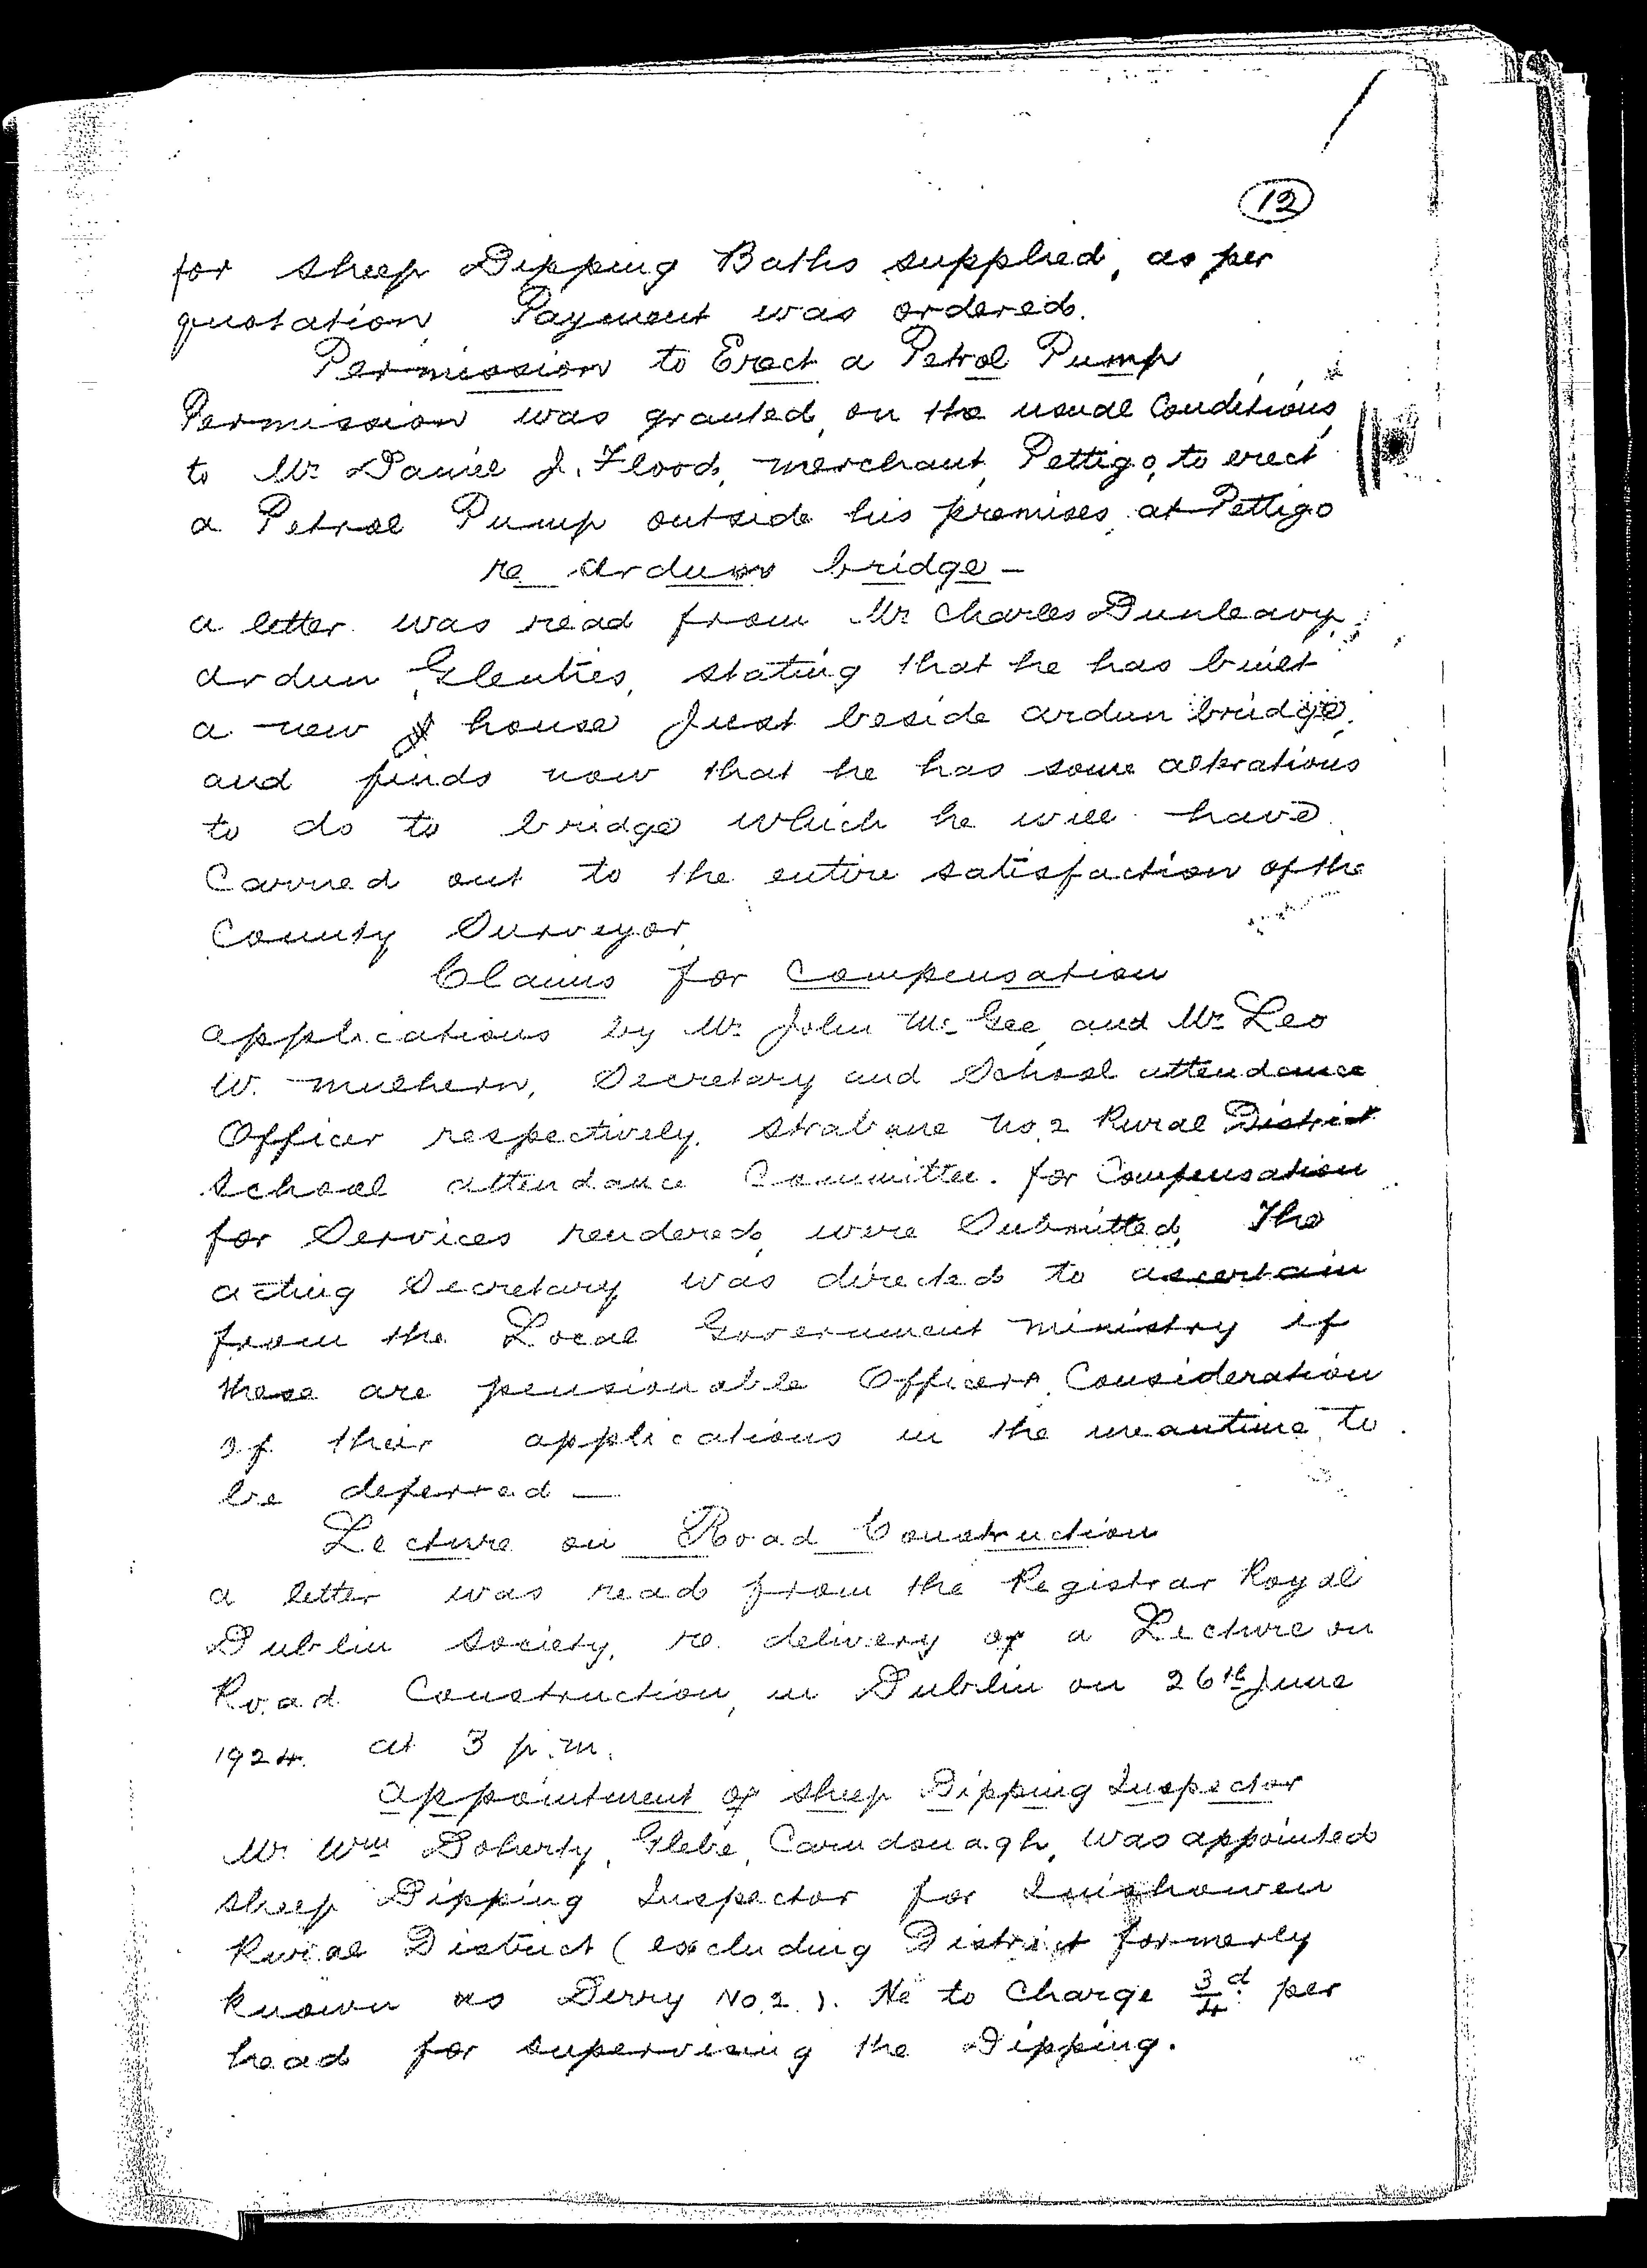 12
for sheep Dipping Baths supplied, as per
quotation. Payment was ordered.
Permission to Erect a Petrol Pump
Permission was granted, on the usual Conditions,
to Mr Daniel J. Flood, merchant, Pettigo, to erect
a Petrol Pump outside his premises at Pettigo
re Ardun bridge -
a letter was read from Mr Charles Dunleavy,
Ardun, Glenties, stating that he has built
a new house just beside ardun bridge,
and finds now that he has some alterations
to do to bridge which he will have
Carried out to the entire satisfaction of the
County Surveyor
Claims for Compensation
applications by Mr John McGee, and Mr Leo
W. Mulhern, Secretary and School attendance
Officer respectively. Strabane No. 2 Rural District
School attendance Committee. for Compensation
for Services rendered, were Submitted. The
acting Secretary was directed to ascertain
from the Local Government Ministry if
these are pensionable Officers, Consideration
of their applications in the meantime, to
be deferred —
Lecture on Road Construction
a letter was read from the Registrar Royal
Dublin Society, re. delivery of a Lecture on
Road Construction, in Dublin on 26th June
1924. at 3 p.m.
Appointment of Sheep Dipping Inspector
Mr Wm Doherty, Glebe, Carndonagh, was appointed
Sheep Dipping Inspector for Inishowen
Rural District (excluding District formerly
known as Derry No. 2.). He to Charge 3/4d. per
head for supervising the Dipping.